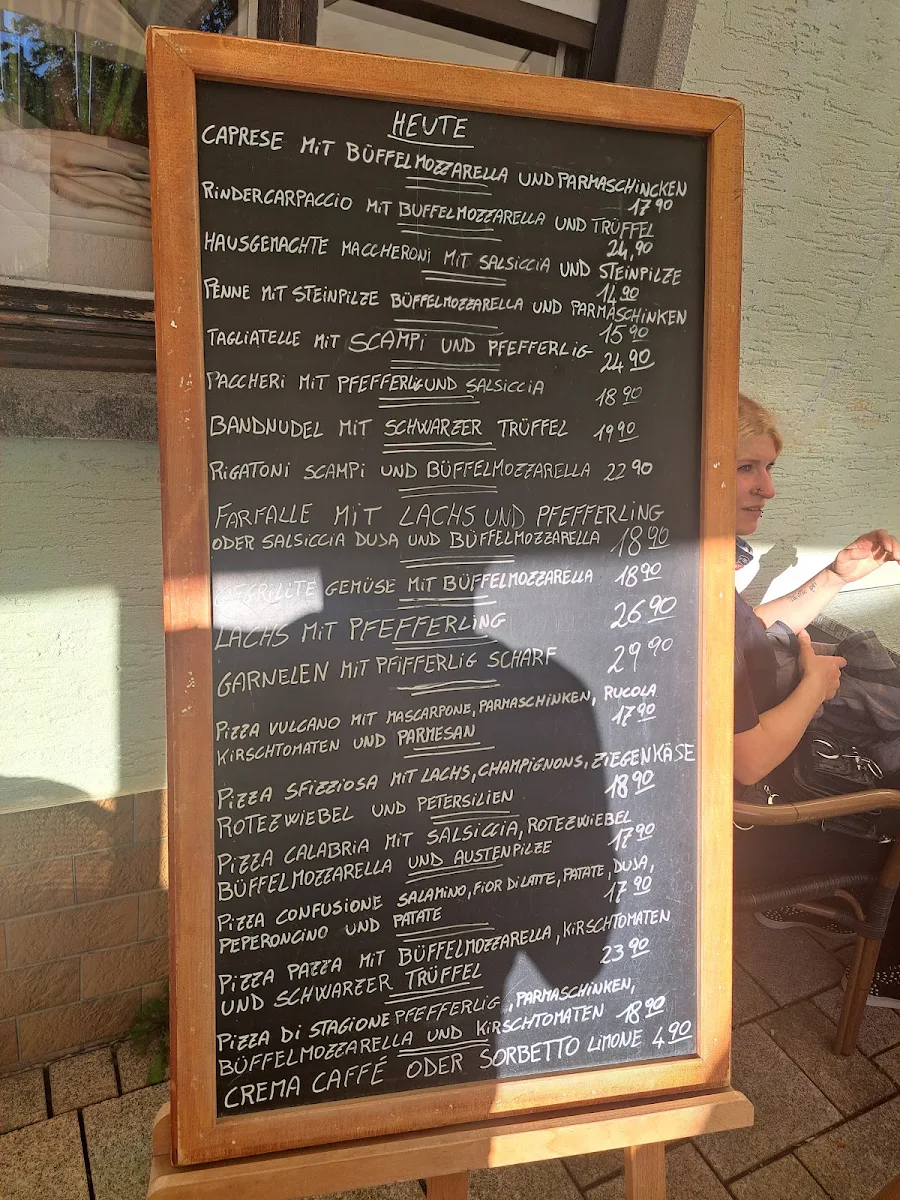 HEUTE
CAPRESE MIT BÜFFELMOZZARELLA UND PARMASCHINCKEN
17 90
RINDERCARPACCIO MIT BÜFFELMOZZARELLA UND TRÜFFEL
24,90
HAUSGEMACHTE MACCHERONI MIT SALSICCIA UND STEINPILZE
14 90
PENNE MIT STEINPILZE BÜFFELMOZZARELLA UND PARMASCHINKEN
15 90
TAGLIATELLE MIT SCAMPI UND PFEFFERLIG 24 90
PACCHERI MIT PFEFFERLIG UND SALSICCIA 18 90
BANDNUDEL MIT SCHWARZER TRÜFFEL 19 90
RIGATONI SCAMPI UND BÜFFELMOZZARELLA 22 90
FARFALLE MIT LACHS UND PFEFFERLING
ODER SALSICCIA DUJA UND BÜFFELMOZZARELLA 18 90
GEGRILLTE GEMÜSE MIT BÜFFELMOZZARELLA 18 90
LACHS MIT PFEFFERLING 26 90
GARNELEN MIT PFIFFERLIG SCHARF 29 90
PIZZA VULCANO MIT MASCARPONE, PARMASCHINKEN, RUCOLA
KIRSCHTOMATEN UND PARMESAN 17 90
PIZZA SFIZZIOSA MIT LACHS, CHAMPIGNONS, ZIEGENKÄSE
ROTEZWIEBEL UND PETERSILIEN 18 90
PIZZA CALABRIA MIT SALSICCIA, ROTEZWIEBEL
BÜFFELMOZZARELLA UND AUSTENPILZE 17 90
PIZZA CONFUSIONE SALAMINO, FIOR DI LATTE, PATATE, DUJA,
PEPERONCINO UND PATATE 17 90
PIZZA PAZZA MIT BÜFFELMOZZARELLA, KIRSCHTOMATEN
UND SCHWARZER TRÜFFEL 23 90
PIZZA DI STAGIONE PFEFFERLIG, PARMASCHINKEN,
BÜFFELMOZZARELLA UND KIRSCHTOMATEN 18 90
CREMA CAFFÉ ODER SORBETTO LIMONE 4 90